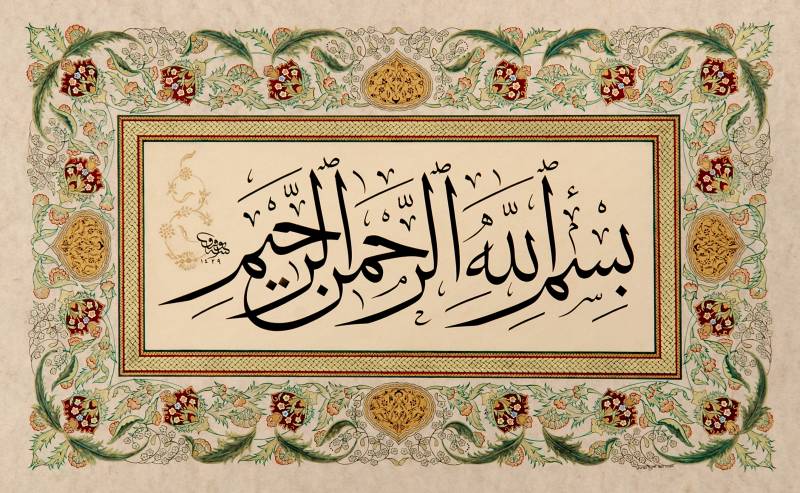 بِسْمِ اللَّهِ الرَّحْمَنِ الرَّحِيمِ
١٤٢٩